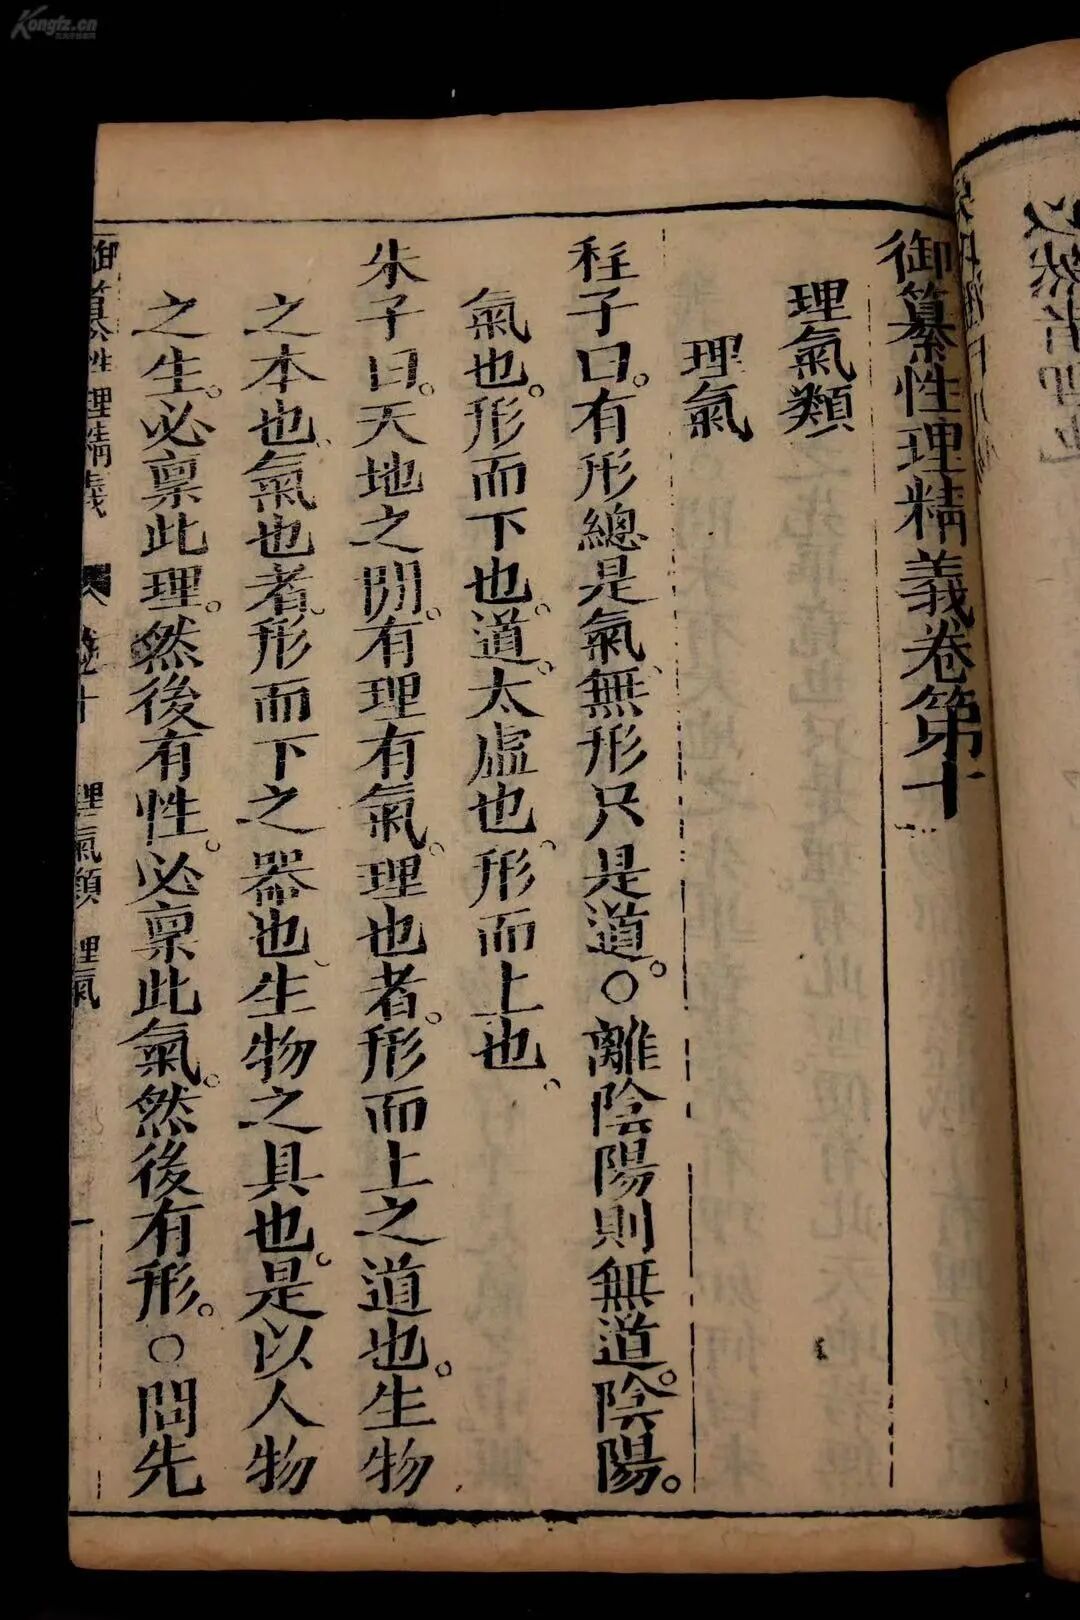 御纂性理精義卷第十
理氣類
理氣
程子曰。有形總是氣。無形只是道。○離陰陽則無道。陰陽。
氣也。形而下也。道。太虛也。形而上也。
朱子曰。天地之閒。有理有氣。理也者。形而上之道也。生物
之本也。氣也者。形而下之器也。生物之具也。是以人物
之生。必禀此理。然後有性。必禀此氣。然後有形。○問先
御纂性理精義
卷十
理氣類
理氣
一
Kongfz.cn